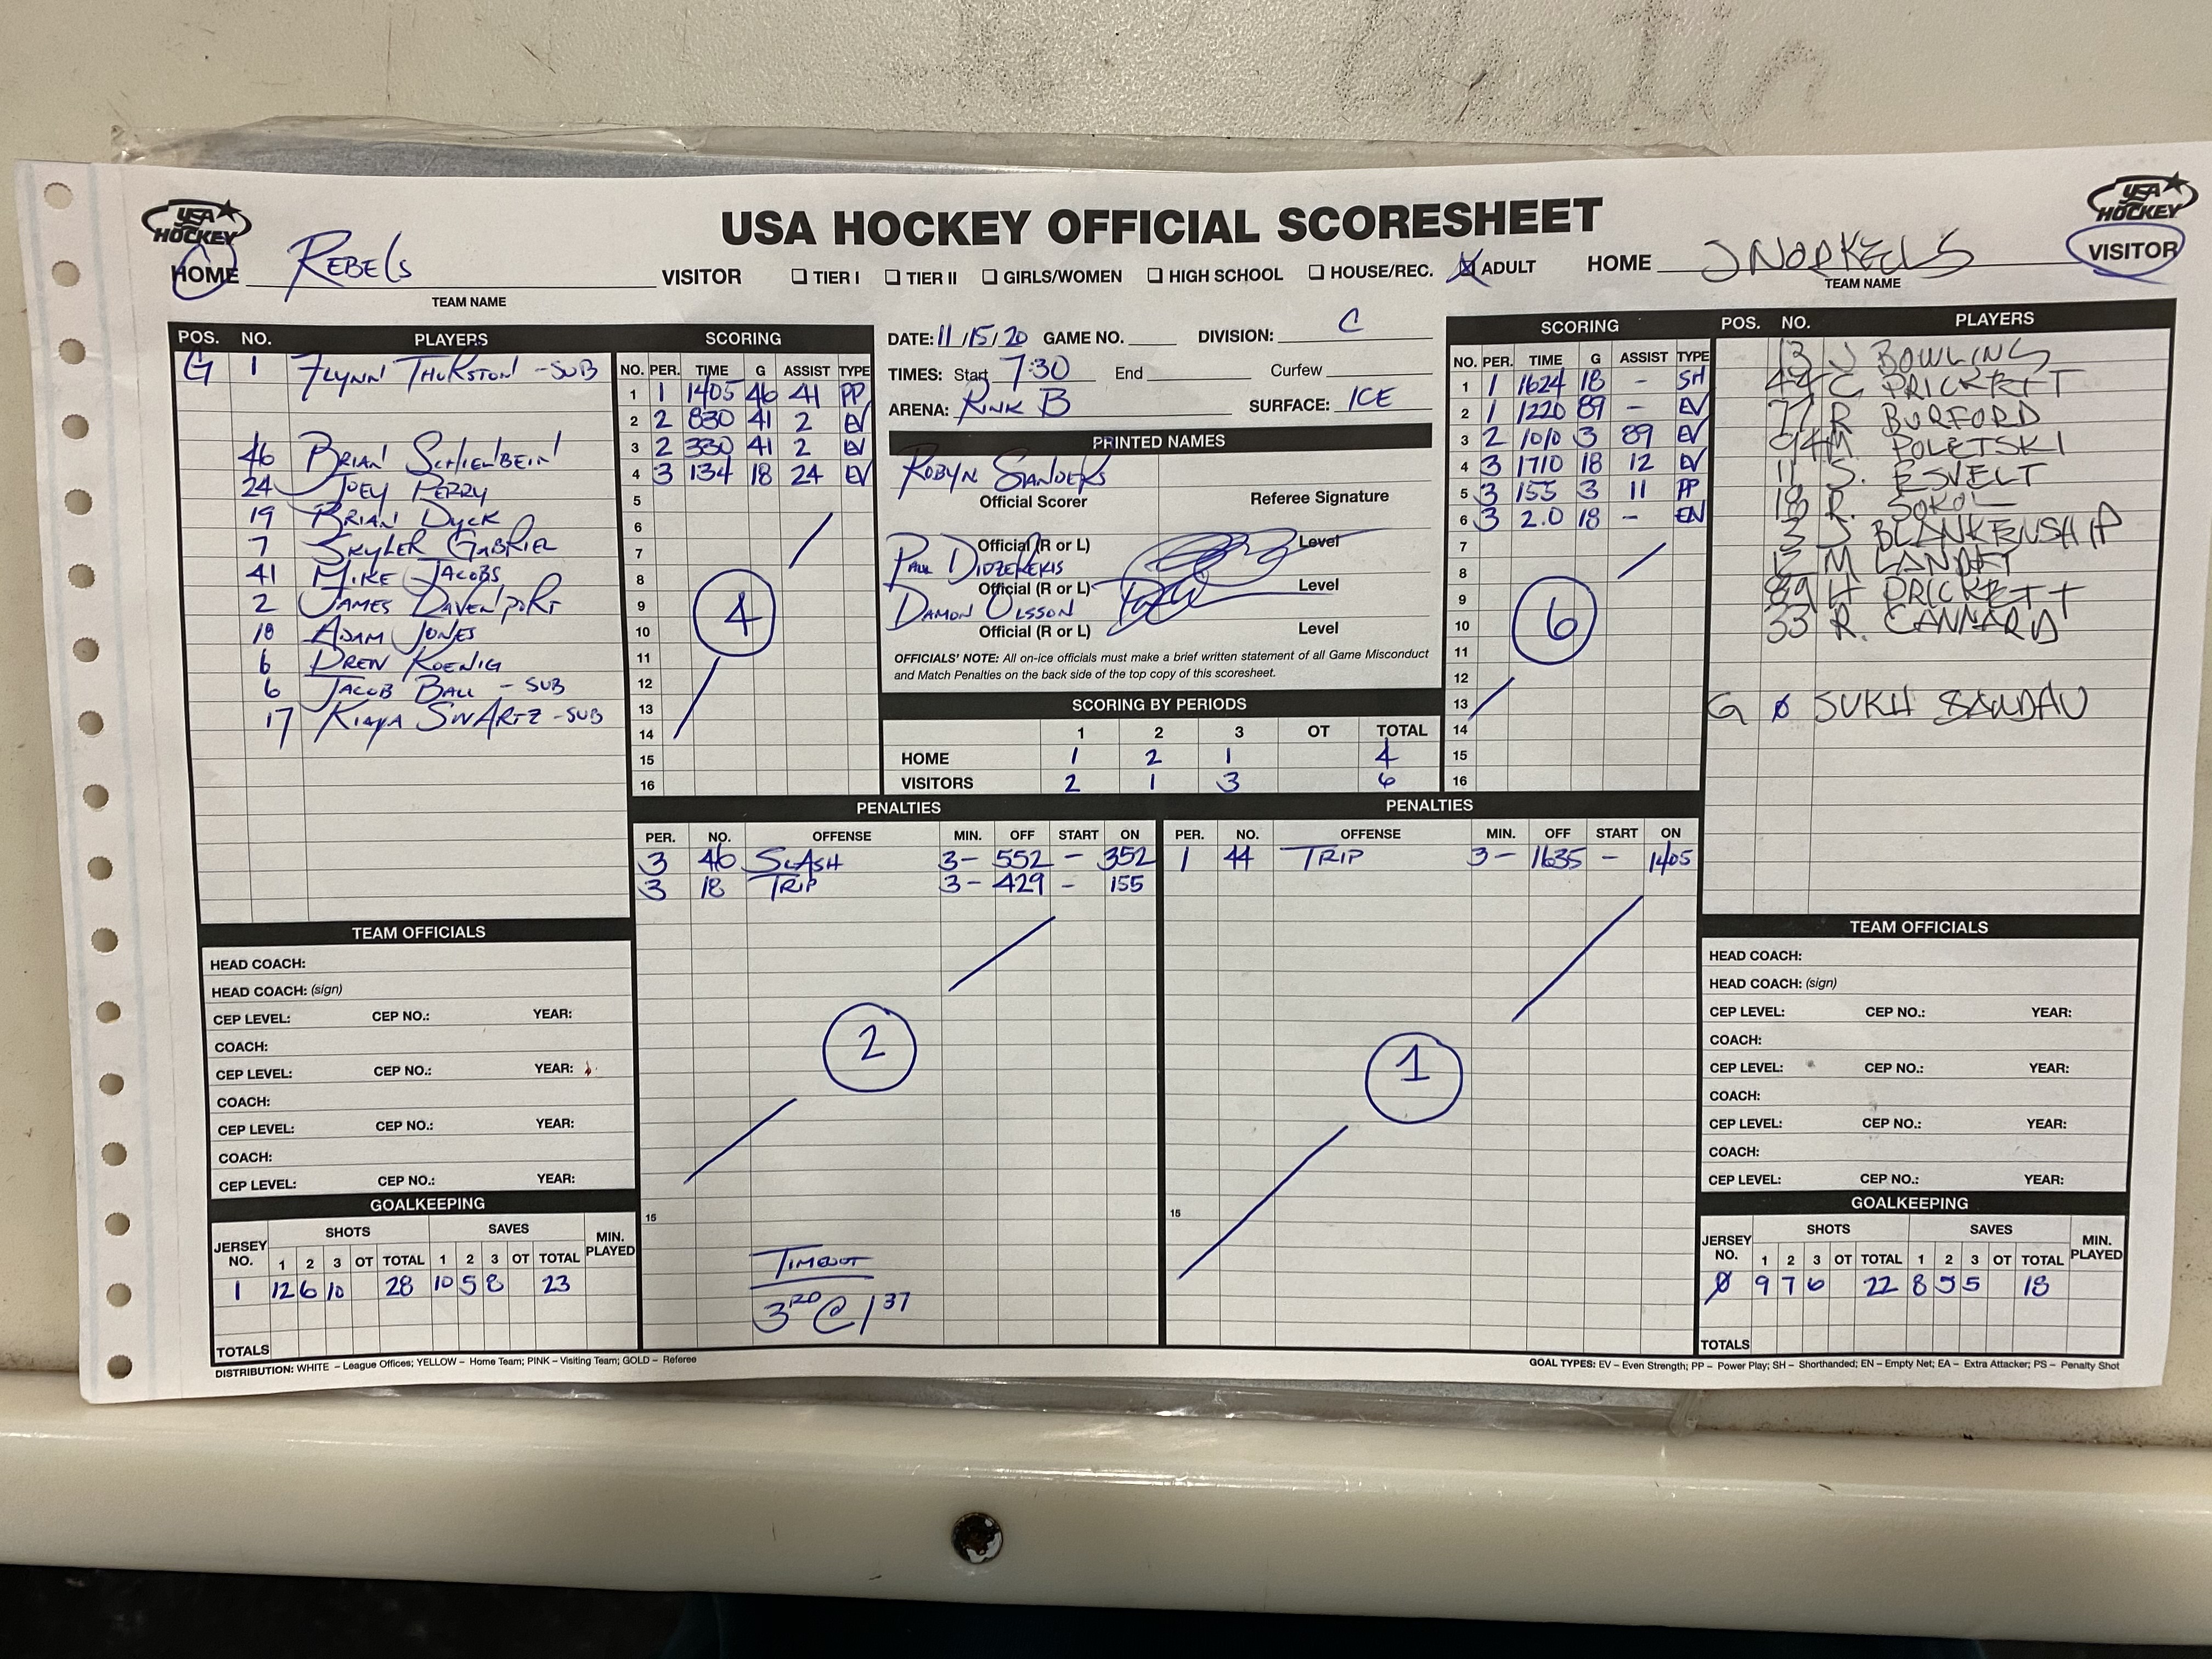 USA HOCKEY OFFICIAL SCORESHEET
USA HOCKEY
USA HOCKEY
HOME Rebels VISITOR
TEAM NAME
TIER I TIER II GIRLS/WOMEN HIGH SCHOOL HOUSE/REC. ADULT
HOME SNORKELS VISITOR
TEAM NAME
POS. NO. PLAYERS
G 1 Flynn Thurston - SUB
46 Brian Schienbein
24 Joey Perry
19 Brian Dyck
7 Skyler Gabriel
41 Mike Jacobs
2 James Davenport
18 Adam Jones
6 Drew Koenig
6 Jacob Ball - SUB
17 Kiaya Swartz - SUB
SCORING
NO. PER. TIME G ASSIST TYPE
1 1 1405 46 41 PP
2 2 830 41 2 EV
3 2 330 41 2 EV
4 3 134 18 24 EV
5
6
7
8
9
10
11
12
13
14
15
16
4
DATE: 11/15/20 GAME NO. DIVISION: C
TIMES: Start 7:30 End Curfew
ARENA: Rink B SURFACE: ICE
PRINTED NAMES
Robyn Sanders
Official Scorer Referee Signature
Official (R or L) Level
Paul Didzerekis
Official (R or L) Level
Damon Olsson
Official (R or L) Level
OFFICIALS' NOTE: All on-ice officials must make a brief written statement of all Game Misconduct
and Match Penalties on the back side of the top copy of this scoresheet.
SCORING BY PERIODS
1 2 3 OT TOTAL
HOME 1 2 1 4
VISITORS 2 1 3 6
SCORING
NO. PER. TIME G ASSIST TYPE
1 1 1624 18 - SH
2 1 1220 89 - EV
3 2 1010 3 89 EV
4 3 1710 18 12 EV
5 3 155 3 11 PP
6 3 2.0 18 - EN
7
8
9
10
11
12
13
14
15
16
6
POS. NO. PLAYERS
13 J BOWLING
44 C PRICKETT
77 R BURFORD
94 M POLETSKI
11 S. ESVELT
18 R. SOKOL
3 J BLANKENSHIP
12 M LANDET
89 H PRICKETT
33 R. CANNARD
G Ø SUKH SANDHU
PENALTIES
PER. NO. OFFENSE MIN. OFF START ON
3 46 SLASH 3- 552 - 352
3 18 TRIP 3- 429 - 155
2
15
TIMEOUT
3RD @ 1 37
PENALTIES
PER. NO. OFFENSE MIN. OFF START ON
1 44 TRIP 3- 1635 - 1405
1
15
TEAM OFFICIALS
HEAD COACH:
HEAD COACH: (sign)
CEP LEVEL: CEP NO.: YEAR:
COACH:
CEP LEVEL: CEP NO.: YEAR:
COACH:
CEP LEVEL: CEP NO.: YEAR:
COACH:
CEP LEVEL: CEP NO.: YEAR:
GOALKEEPING
JERSEY NO. SHOTS SAVES MIN. PLAYED
1 2 3 OT TOTAL 1 2 3 OT TOTAL
1 12 6 10 28 10 5 8 23
TOTALS
TEAM OFFICIALS
HEAD COACH:
HEAD COACH: (sign)
CEP LEVEL: CEP NO.: YEAR:
COACH:
CEP LEVEL: CEP NO.: YEAR:
COACH:
CEP LEVEL: CEP NO.: YEAR:
COACH:
CEP LEVEL: CEP NO.: YEAR:
GOALKEEPING
JERSEY NO. SHOTS SAVES MIN. PLAYED
1 2 3 OT TOTAL 1 2 3 OT TOTAL
Ø 9 7 6 22 8 5 5 18
TOTALS
DISTRIBUTION: WHITE – League Offices; YELLOW – Home Team; PINK – Visiting Team; GOLD – Referee
GOAL TYPES: EV – Even Strength; PP – Power Play; SH – Shorthanded; EN – Empty Net; EA – Extra Attacker; PS – Penalty Shot